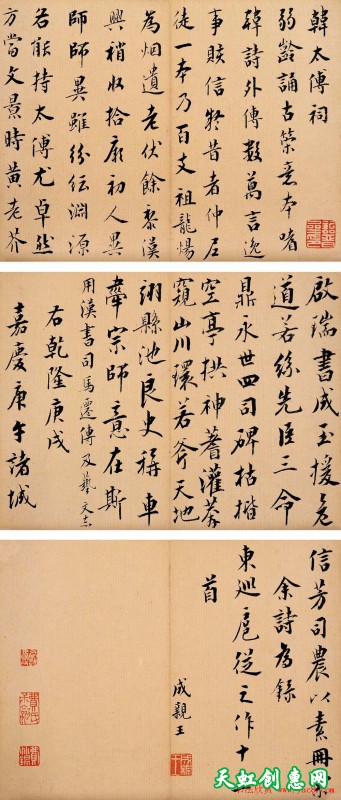 韓太傅祠
弱齡誦古槃意本嗜
韓詩外傳數萬言逸
事賅信昔者仲尼
徒一本乃百支祖龍惕
為烟遺老伏餘黎漢
興稍收拾厥初人異
師師異雖紛紜淵源
各能持太傅尤卓然
方當文景時黃老芥
啟瑞書成玉援
道若絲先臣三命
鼎永世四司碑枯楷
空亭拱神蓍灌莽
窺山川環若斧天地
詡縣池良史稱車
牽宗師意在斯
用漢書司馬遷傳及藝文志
右乾隆庚戌
嘉慶庚午諸城
信芳司農以素冊索
余詩為錄
東巡扈從之作十
首
成親王
天虹创惠网